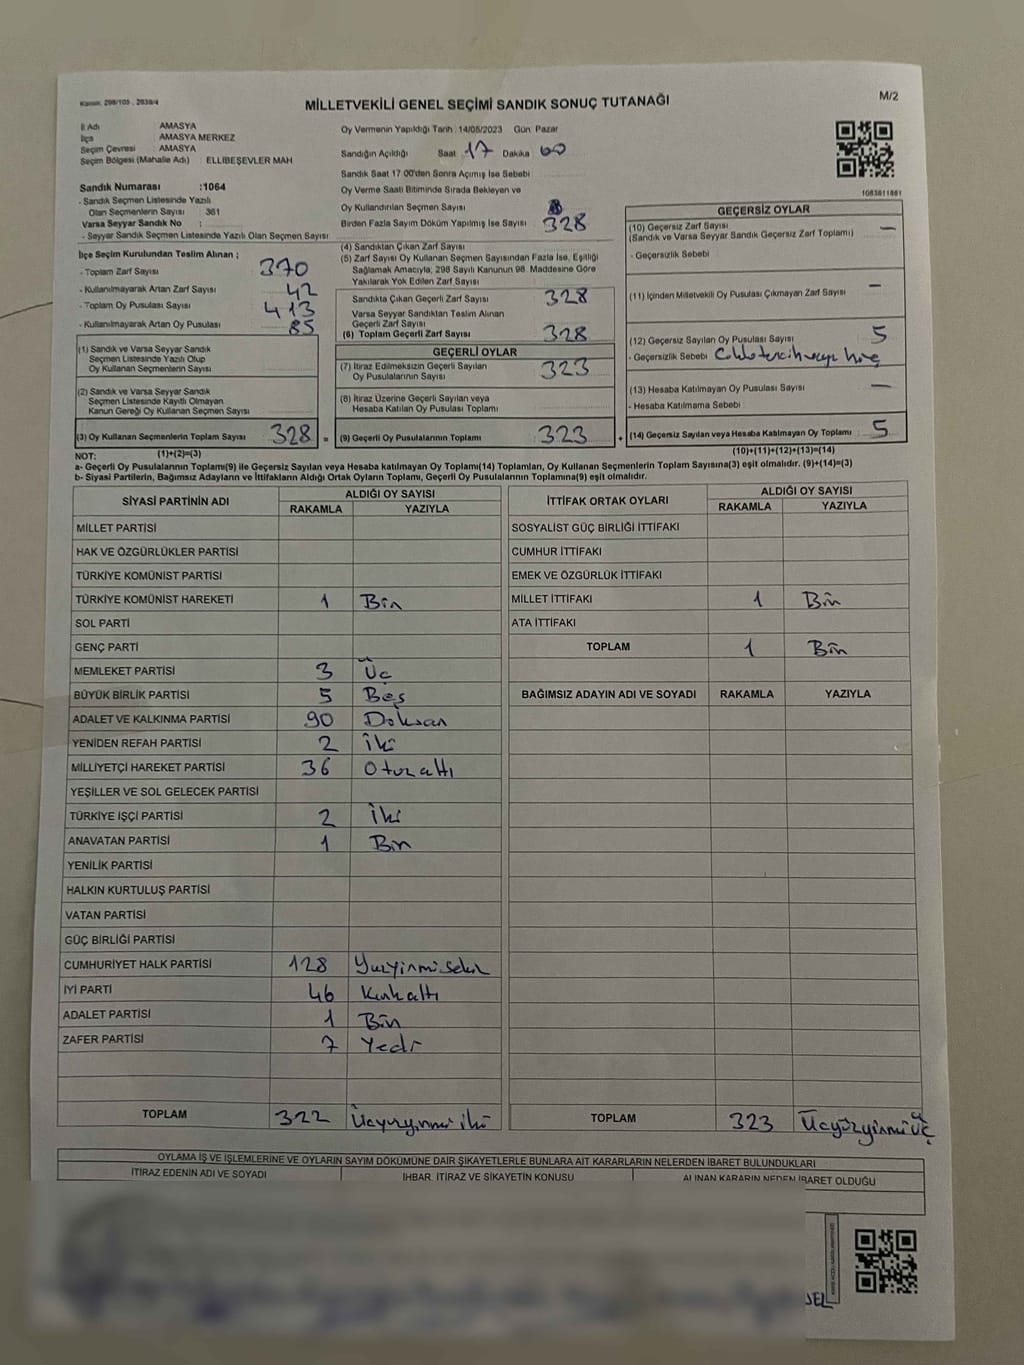 Kanun: 298/105 , 2839/4
MİLLETVEKİLİ GENEL SEÇİMİ SANDIK SONUÇ TUTANAĞI
M/2
İl Adı AMASYA
İlçe AMASYA MERKEZ
Seçim Çevresi AMASYA
Seçim Bölgesi (Mahalle Adı) : ELLİBEŞEVLER MAH
Sandık Numarası :1064
- Sandık Seçmen Listesinde Yazılı
Olan Seçmenlerin Sayısı : 361
Varsa Seyyar Sandık No :
- Seyyar Sandık Seçmen Listesinde Yazılı Olan Seçmen Sayısı:
İlçe Seçim Kurulundan Teslim Alınan ;
- Toplam Zarf Sayısı 370
- Kullanılmayarak Artan Zarf Sayısı 42
- Toplam Oy Pusulası Sayısı 413
- Kullanılmayarak Artan Oy Pusulası 85
(1) Sandık ve Varsa Seyyar Sandık
Seçmen Listesinde Yazılı Olup
Oy Kullanan Seçmenlerin Sayısı :
(2) Sandık ve Varsa Seyyar Sandık
Seçmen Listesinde Kayıtlı Olmayan
Kanun Gereği Oy Kullanan Seçmen Sayısı :
(3) Oy Kullanan Seçmenlerin Toplam Sayısı 328 =
Oy Vermenin Yapıldığı Tarih :14/05/2023 Gün: Pazar
Sandığın Açıldığı Saat : 17 Dakika : 00
Sandık Saat 17.00'den Sonra Açılmış İse Sebebi
Oy Verme Saati Bitiminde Sırada Bekleyen ve
Oy Kullandırılan Seçmen Sayısı
Birden Fazla Sayım Döküm Yapılmış İse Sayısı : 328
(4) Sandıktan Çıkan Zarf Sayısı
(5) Zarf Sayısı Oy Kullanan Seçmen Sayısından Fazla İse, Eşitliği
Sağlamak Amacıyla; 298 Sayılı Kanunun 98. Maddesine Göre
Yakılarak Yok Edilen Zarf Sayısı
Sandıkta Çıkan Geçerli Zarf Sayısı 328
Varsa Seyyar Sandıktan Teslim Alınan
Geçerli Zarf Sayısı
(6) Toplam Geçerli Zarf Sayısı 328
GEÇERLİ OYLAR
(7) İtiraz Edilmeksizin Geçerli Sayılan
Oy Pusulalarının Sayısı : 323
(8) İtiraz Üzerine Geçerli Sayılan veya
Hesaba Katılan Oy Pusulası Toplamı :
(9) Geçerli Oy Pusulalarının Toplamı : 323 +
1083811861
GEÇERSİZ OYLAR
(10) Geçersiz Zarf Sayısı
(Sandık ve Varsa Seyyar Sandık Geçersiz Zarf Toplamı) : —
- Geçersizlik Sebebi
(11) İçinden Milletvekili Oy Pusulası Çıkmayan Zarf Sayısı —
(12) Geçersiz Sayılan Oy Pusulası Sayısı 5
- Geçersizlik Sebebi
(13) Hesaba Katılmayan Oy Pusulası Sayısı —
- Hesaba Katılmama Sebebi
(14) Geçersiz Sayılan veya Hesaba Katılmayan Oy Toplamı : 5
NOT: (1)+(2)=(3) (10)+(11)+(12)+(13)=(14)
a- Geçerli Oy Pusulalarının Toplamı(9) ile Geçersiz Sayılan veya Hesaba katılmayan Oy Toplamı(14) Toplamları, Oy Kullanan Seçmenlerin Toplam Sayısına(3) eşit olmalıdır. (9)+(14)=(3)
b- Siyasi Partilerin, Bağımsız Adayların ve İttifakların Aldığı Ortak Oyların Toplamı, Geçerli Oy Pusulalarının Toplamına(9) eşit olmalıdır.
SİYASİ PARTİNİN ADI ALDIĞI OY SAYISI
RAKAMLA YAZIYLA
MİLLET PARTİSİ
HAK VE ÖZGÜRLÜKLER PARTİSİ
TÜRKİYE KOMÜNİST PARTİSİ
TÜRKİYE KOMÜNİST HAREKETİ 1 Bir
SOL PARTİ
GENÇ PARTİ
MEMLEKET PARTİSİ 3 Üç
BÜYÜK BİRLİK PARTİSİ 5 Beş
ADALET VE KALKINMA PARTİSİ 90 Doksan
YENİDEN REFAH PARTİSİ 2 İki
MİLLİYETÇİ HAREKET PARTİSİ 36 Otuzaltı
YEŞİLLER VE SOL GELECEK PARTİSİ
TÜRKİYE İŞÇİ PARTİSİ 2 İki
ANAVATAN PARTİSİ 1 Bir
YENİLİK PARTİSİ
HALKIN KURTULUŞ PARTİSİ
VATAN PARTİSİ
GÜÇ BİRLİĞİ PARTİSİ
CUMHURİYET HALK PARTİSİ 128 Yüzyirmisekiz
İYİ PARTİ 46 Kırkaltı
ADALET PARTİSİ 1 Bir
ZAFER PARTİSİ 7 Yedi
TOPLAM 322 Üçyüzyirmi iki
İTTİFAK ORTAK OYLARI ALDIĞI OY SAYISI
RAKAMLA YAZIYLA
SOSYALİST GÜÇ BİRLİĞİ İTTİFAKI
CUMHUR İTTİFAKI
EMEK VE ÖZGÜRLÜK İTTİFAKI
MİLLET İTTİFAKI 1 Bir
ATA İTTİFAKI
TOPLAM 1 Bir
BAĞIMSIZ ADAYIN ADI VE SOYADI RAKAMLA YAZIYLA
TOPLAM 323 Üçyüzyirmiüç
OYLAMA İŞ VE İŞLEMLERİNE VE OYLARIN SAYIM DÖKÜMÜNE DAİR ŞİKAYETLERLE BUNLARA AİT KARARLARIN NELERDEN İBARET BULUNDUKLARI
İTİRAZ EDENİN ADI VE SOYADI İHBAR, İTİRAZ VE ŞİKAYETİN KONUSU ALINAN KARARIN NEDEN İBARET OLDUĞU